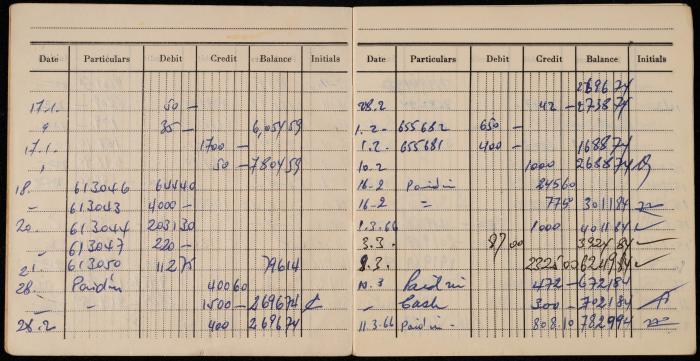 Date Particulars Debit Credit Balance Initials
17.1. 50 —
" 35 — 6,054 59
17.1. 1700 —
" 50 — 7804 59
18. 613046 644 40
— 613043 4000 —
20. 613044 2031 30
613047 220 —
21. 613050 112 75 796 14
28. Paid in 400 60
— " 1500 — 2696 74
28.2 400 2696 74
Date Particulars Debit Credit Balance Initials
2696 74
28.2 42 — 2738 74
1.2- 655682 650 —
1.2- 655681 400 — 1688 74
10.2 1000 2688 74
16-2 Paid in 245 60
16-2 = 77 50 3011 84
1.3.66 1000 4011 84
3.3. 87.00 3924 84
8.3. 2325 00 6249 84
10.3 Paid in 472 — 6721 84
— Cash 300 — 7021 84
11.3.66 Paid in - 808.10 7829 94